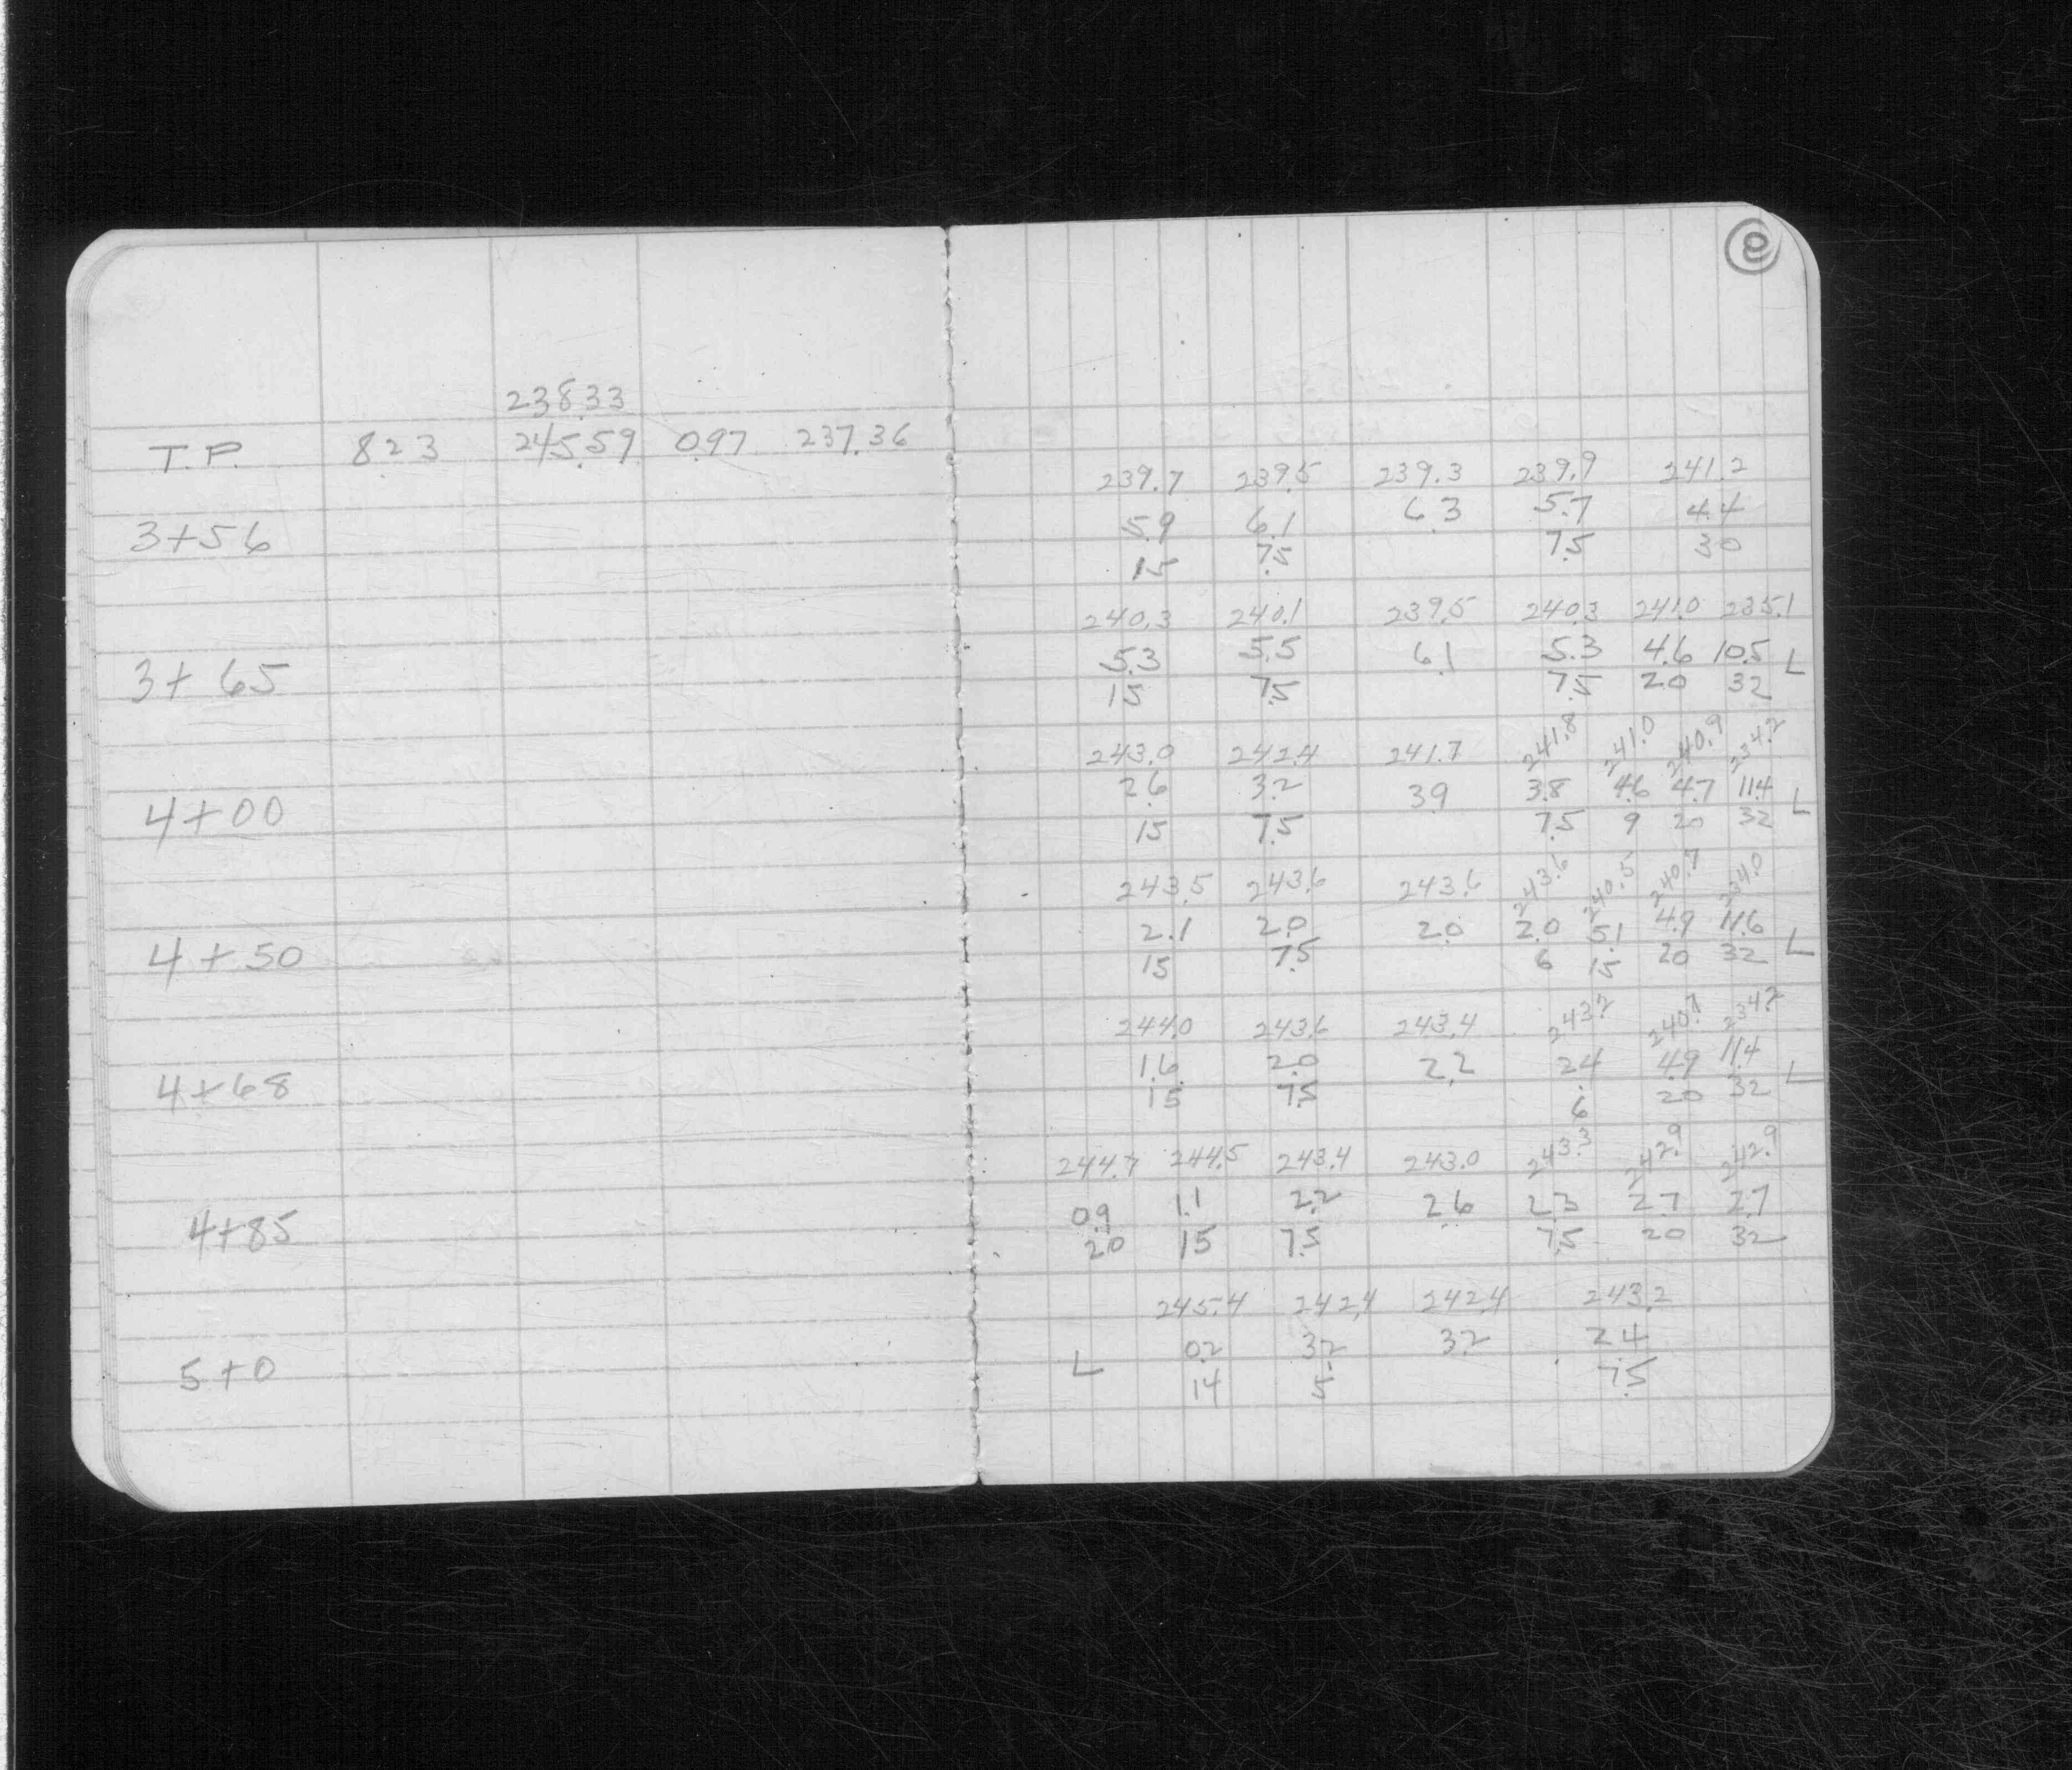 238.33
T.P. 8.23 245.59 0.97 237.36
239.7 239.5 239.3 239.9 241.2
3+56 5.9 6.1 6.3 5.7 4.4
15 7.5 7.5 30
240.3 240.1 239.5 240.3 241.0 235.1
3+65 5.3 5.5 6.1 5.3 4.6 10.5 L
15 7.5 7.5 20 32
243.0 242.4 241.7 241.8 241.0 240.9 234.2
4+00 2.6 3.2 3.9 3.8 4.6 4.7 11.4 L
15 7.5 7.5 9 20 32
243.5 243.6 243.6 243.6 240.5 240.7 234.0
4+50 2.1 2.0 2.0 2.0 5.1 4.9 11.6 L
15 7.5 6 15 20 32
244.0 243.6 243.4 243.2 240.7 234.2
4+68 1.6 2.0 2.2 2.4 4.9 11.4 L
15 7.5 6 20 32
244.7 244.5 243.4 243.0 243.3 242.9 242.9
4+85 0.9 1.1 2.2 2.6 2.3 2.7 2.7
20 15 7.5 7.5 20 32
245.4 242.4 242.4 243.2
5+0 L 0.2 3.2 3.2 2.4
14 5 7.5